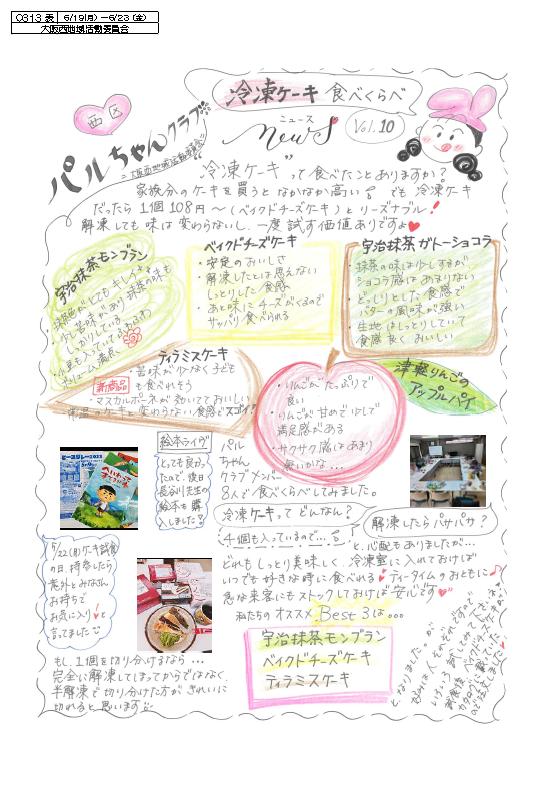 0313 表 6/19(月)-6/23(金)
大阪西地域活動委員会
西区
パルちゃんクラブ
大阪西地域活動委員会
冷凍ケーキ 食べくらべ
ニュース
News
Vol.10
"冷凍ケーキ"って食べたことありますか?
家族分のケーキを買うとなかなか高い でも冷凍ケーキ
だったら1個108円〜(ベイクドチーズケーキ)とリーズナブル!
解凍しても味は変わらないし、一度試す価値ありですよ
宇治抹茶モンブラン
・抹茶色がとてもキレイ
・少し苦味があり抹茶の味も
しっかりしている
ボリューム満点
ベイクドチーズケーキ
・安定のおいしさ
・解凍したとは思えない
しっとりした食感
・あと味にチーズがくるので
サッパリ食べられる
宇治抹茶ガトーショコラ
・抹茶の味は少しするが
ショコラ感はあまりない
・どっしりとした食感で
バターの風味が強い
・生地はしっとりしていて
食感良くおいしい
ティラミスケーキ
新商品
・苦味が少なく子ども
も食べれそう
・マスカルポーネが効いてておいしい
・常温のケーキと変わらない食感でスゴイ!
津軽りんごの
アップルパイ
・りんごがたっぷりで
良い
・りんごが甘めで少しで
満足感がある
・サクサク感はあまり
無いかな…
絵本ライヴ
とっても良かっ
たので、後日
長谷川先生の
絵本も購
入しました
パル
ちゃん
クラブメンバー
8人で食べくらべしてみました。
冷凍ケーキってどんなん?
4個も入っているので…
解凍したらパサパサ?
と、心配もありましたが…
どれもしっとり美味しく、冷凍室に入れておけば
いつでも好きな時に食べれる ティータイムのおともに
急な来客にもストックしておけば安心です
私たちのオススメ Best3は…
宇治抹茶モンブラン
ベイクドチーズケーキ
ティラミスケーキ
5/22(月)ケーキ試食
の日、持参したら
意外とみなさん
お持ちで
お気に入り と
言ってました
もし、1個を切り分けるなら…
完全に解凍してしまってからではなく、
半解凍で切り分けた方がきれいに
切れると思います
と、なりました。が
好みは人それぞれですので
いろいろ試してみて下さいネ
試食後、ベイクドチーズケーキが
カタログに載っていた
ので注文しました